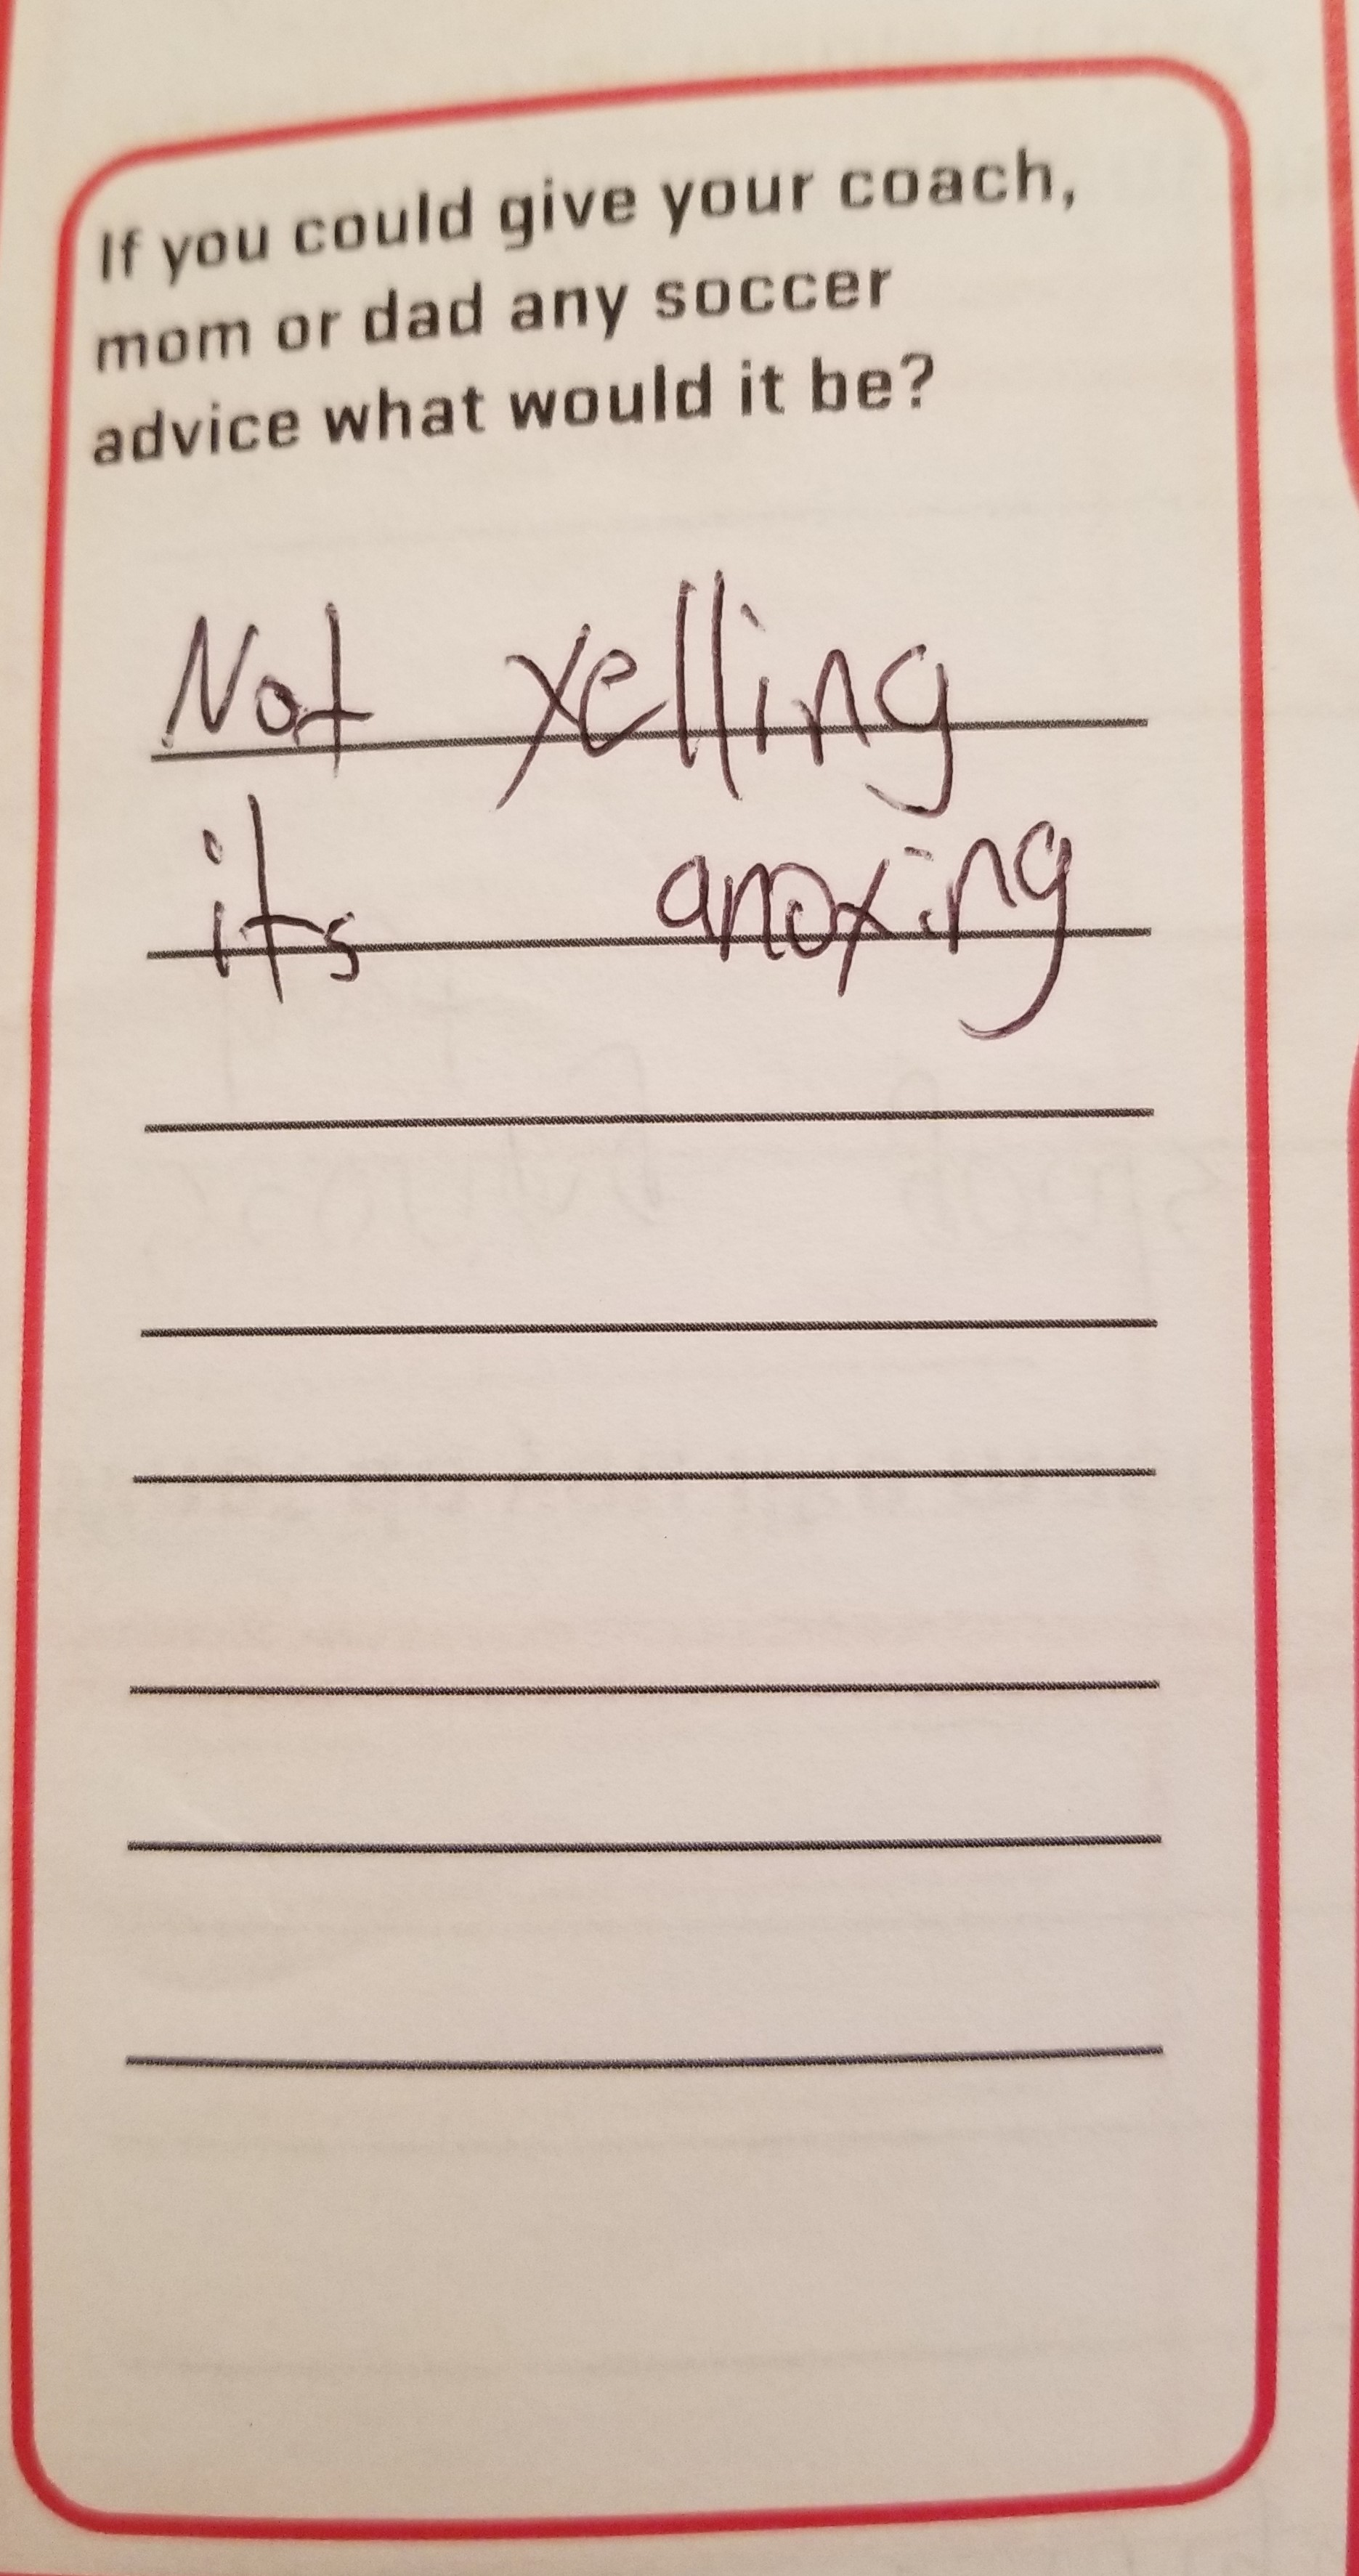 If you could give your coach,
mom or dad any soccer
advice what would it be?
Not yelling
its anoying